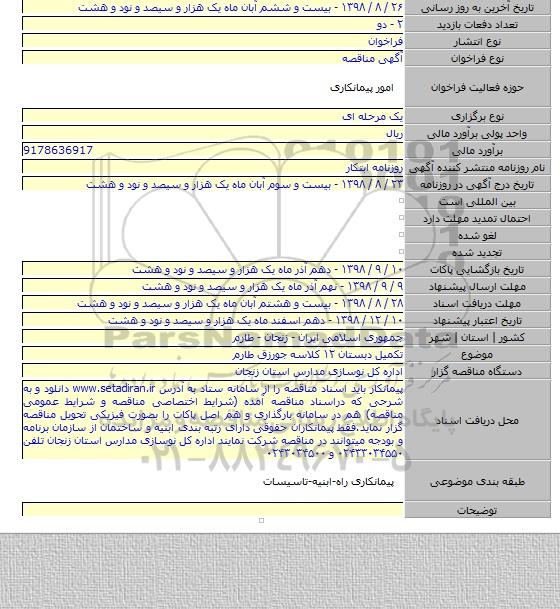 تاریخ آخرین به روز رسانی ۲۶ / ۸ / ۱۳۹۸ - بیست و ششم آبان ماه یک هزار و سیصد و نود و هشت
تعداد دفعات بازدید ۲ - دو
نوع انتشار فراخوان
نوع فراخوان آگهی مناقصه
حوزه فعالیت فراخوان امور پیمانکاری
نوع برگزاری یک مرحله ای
واحد پولی برآورد مالی ریال
برآورد مالی 9178636917
نام روزنامه منتشر کننده آگهی روزنامه ابتکار
تاریخ درج آگهی در روزنامه ۲۳ / ۸ / ۱۳۹۸ - بیست و سوم آبان ماه یک هزار و سیصد و نود و هشت
بین المللی است
احتمال تمدید مهلت دارد
لغو شده
تجدید شده
تاریخ بازگشایی پاکات ۱۰ / ۹ / ۱۳۹۸ - دهم آذر ماه یک هزار و سیصد و نود و هشت
مهلت ارسال پیشنهاد ۹ / ۹ / ۱۳۹۸ - نهم آذر ماه یک هزار و سیصد و نود و هشت
مهلت دریافت اسناد ۲۸ / ۸ / ۱۳۹۸ - بیست و هشتم آبان ماه یک هزار و سیصد و نود و هشت
تاریخ اعتبار پیشنهاد ۱۰ / ۱۲ / ۱۳۹۸ - دهم اسفند ماه یک هزار و سیصد و نود و هشت
کشور | استان | شهر جمهوری اسلامی ایران - زنجان - طارم
موضوع تکمیل دبستان ۱۲ کلاسه جورزق طارم
دستگاه مناقصه گزار اداره کل نوسازی مدارس استان زنجان
محل دریافت اسناد پیمانکار باید اسناد مناقصه را از سامانه ستاد به آدرس www.setadiran.ir دانلود و به
شرحی که دراسناد مناقصه آمده (شرایط اختصاصی مناقصه و شرایط عمومی
مناقصه) هم در سامانه بارگذاری و هم اصل پاکات را بصورت فیزیکی تحویل مناقصه
گزار نماید.فقط پیمانکاران حقوقی دارای رتبه بندی ابنیه و ساختمان از سازمان برنامه
و بودجه میتوانند در مناقصه شرکت نمایند اداره کل نوسازی مدارس استان زنجان تلفن
۰۲۴۳۳۰۳۴۵۵۰ و ۰۲۴۳۰۳۴۵۰۰
طبقه بندی موضوعی پیمانکاری راه-ابنیه-تاسیسات
توضیحات
ParsNamadData
۰۲۱-۸۸۳۴۹۶۷۰-۵